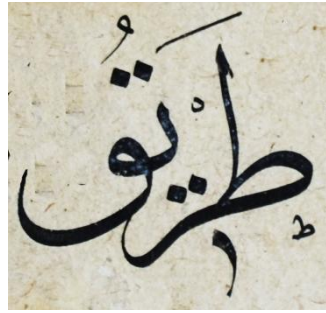 طريق